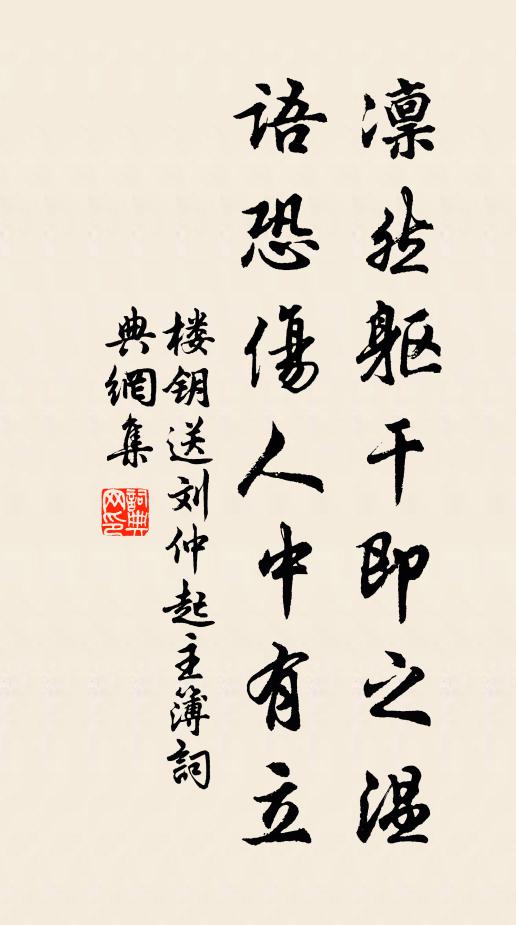 凛然躯干即之温
语恐傷人中有立
楼钥送刘仲起主簿詞
典網集
詞典网印